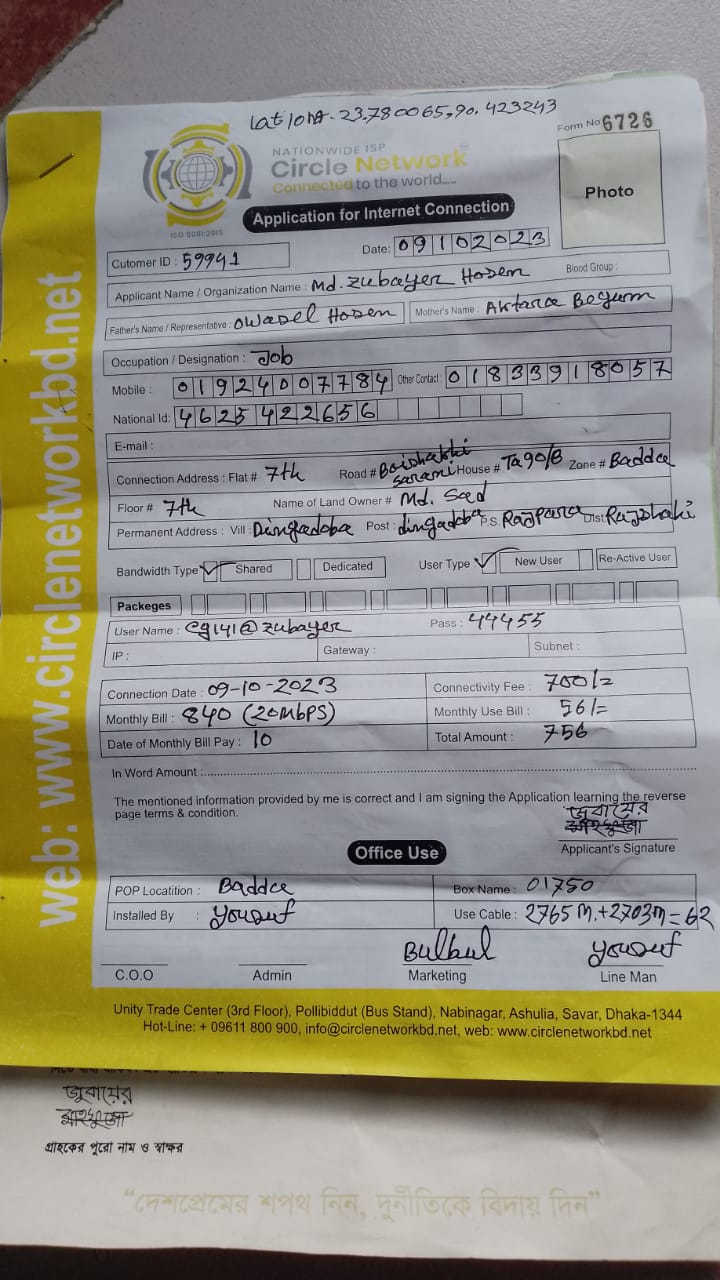 lat/ong-23.780065,90.423243
Form No 6726
NATIONWIDE ISP
Circle Network
Connected to the world.....
ISO 9001:2015
Photo
Application for Internet Connection
Date: 09102023
Cutomer ID : 59941
Applicant Name / Organization Name : Md. Zubayer Hosen Blood Group :
Father's Name / Representative : Owasel Hosen Mother's Name : Aktara Begum
Occupation / Designation : Job
Mobile : 01924007784 Other Contact : 01833918057
National Id: 4625422656
E-mail :
Connection Address : Flat # 7th Road # Boishakhi Sarani House # Ta90/B Zone # Badda
Floor # 7th Name of Land Owner # Md. Sad
Permanent Address : Vill : Dingadoba Post : dingadoba P.S. Rajpara Dist Rajshahi
Bandwidth Type Shared Dedicated User Type New User Re-Active User
Packeges
User Name : cg141@zubayer Pass : 44455
IP : Gateway : Subnet :
Connection Date : 09-10-2023 Connectivity Fee : 700/=
Monthly Bill : 840 (20Mbps) Monthly Use Bill : 56/=
Date of Monthly Bill Pay : 10 Total Amount : 756
In Word Amount :
The mentioned information provided by me is correct and I am signing the Application learning the reverse
page terms & condition.
জুবায়ের
Applicant's Signature
Office Use
POP Locatition : Badda Box Name : 01750
Installed By : Yousuf Use Cable : 2765 m.+2703m=62
Bulbul Yousuf
C.O.O Admin Marketing Line Man
Unity Trade Center (3rd Floor), Pollibiddut (Bus Stand), Nabinagar, Ashulia, Savar, Dhaka-1344
Hot-Line: + 09611 800 900, info@circlenetworkbd.net, web: www.circlenetworkbd.net
web: www.circlenetworkbd.net
জুবায়ের
গ্রাহকের পুরো নাম ও স্বাক্ষর
“দেশপ্রেমের শপথ নিন, দুর্নীতিকে বিদায় দিন”